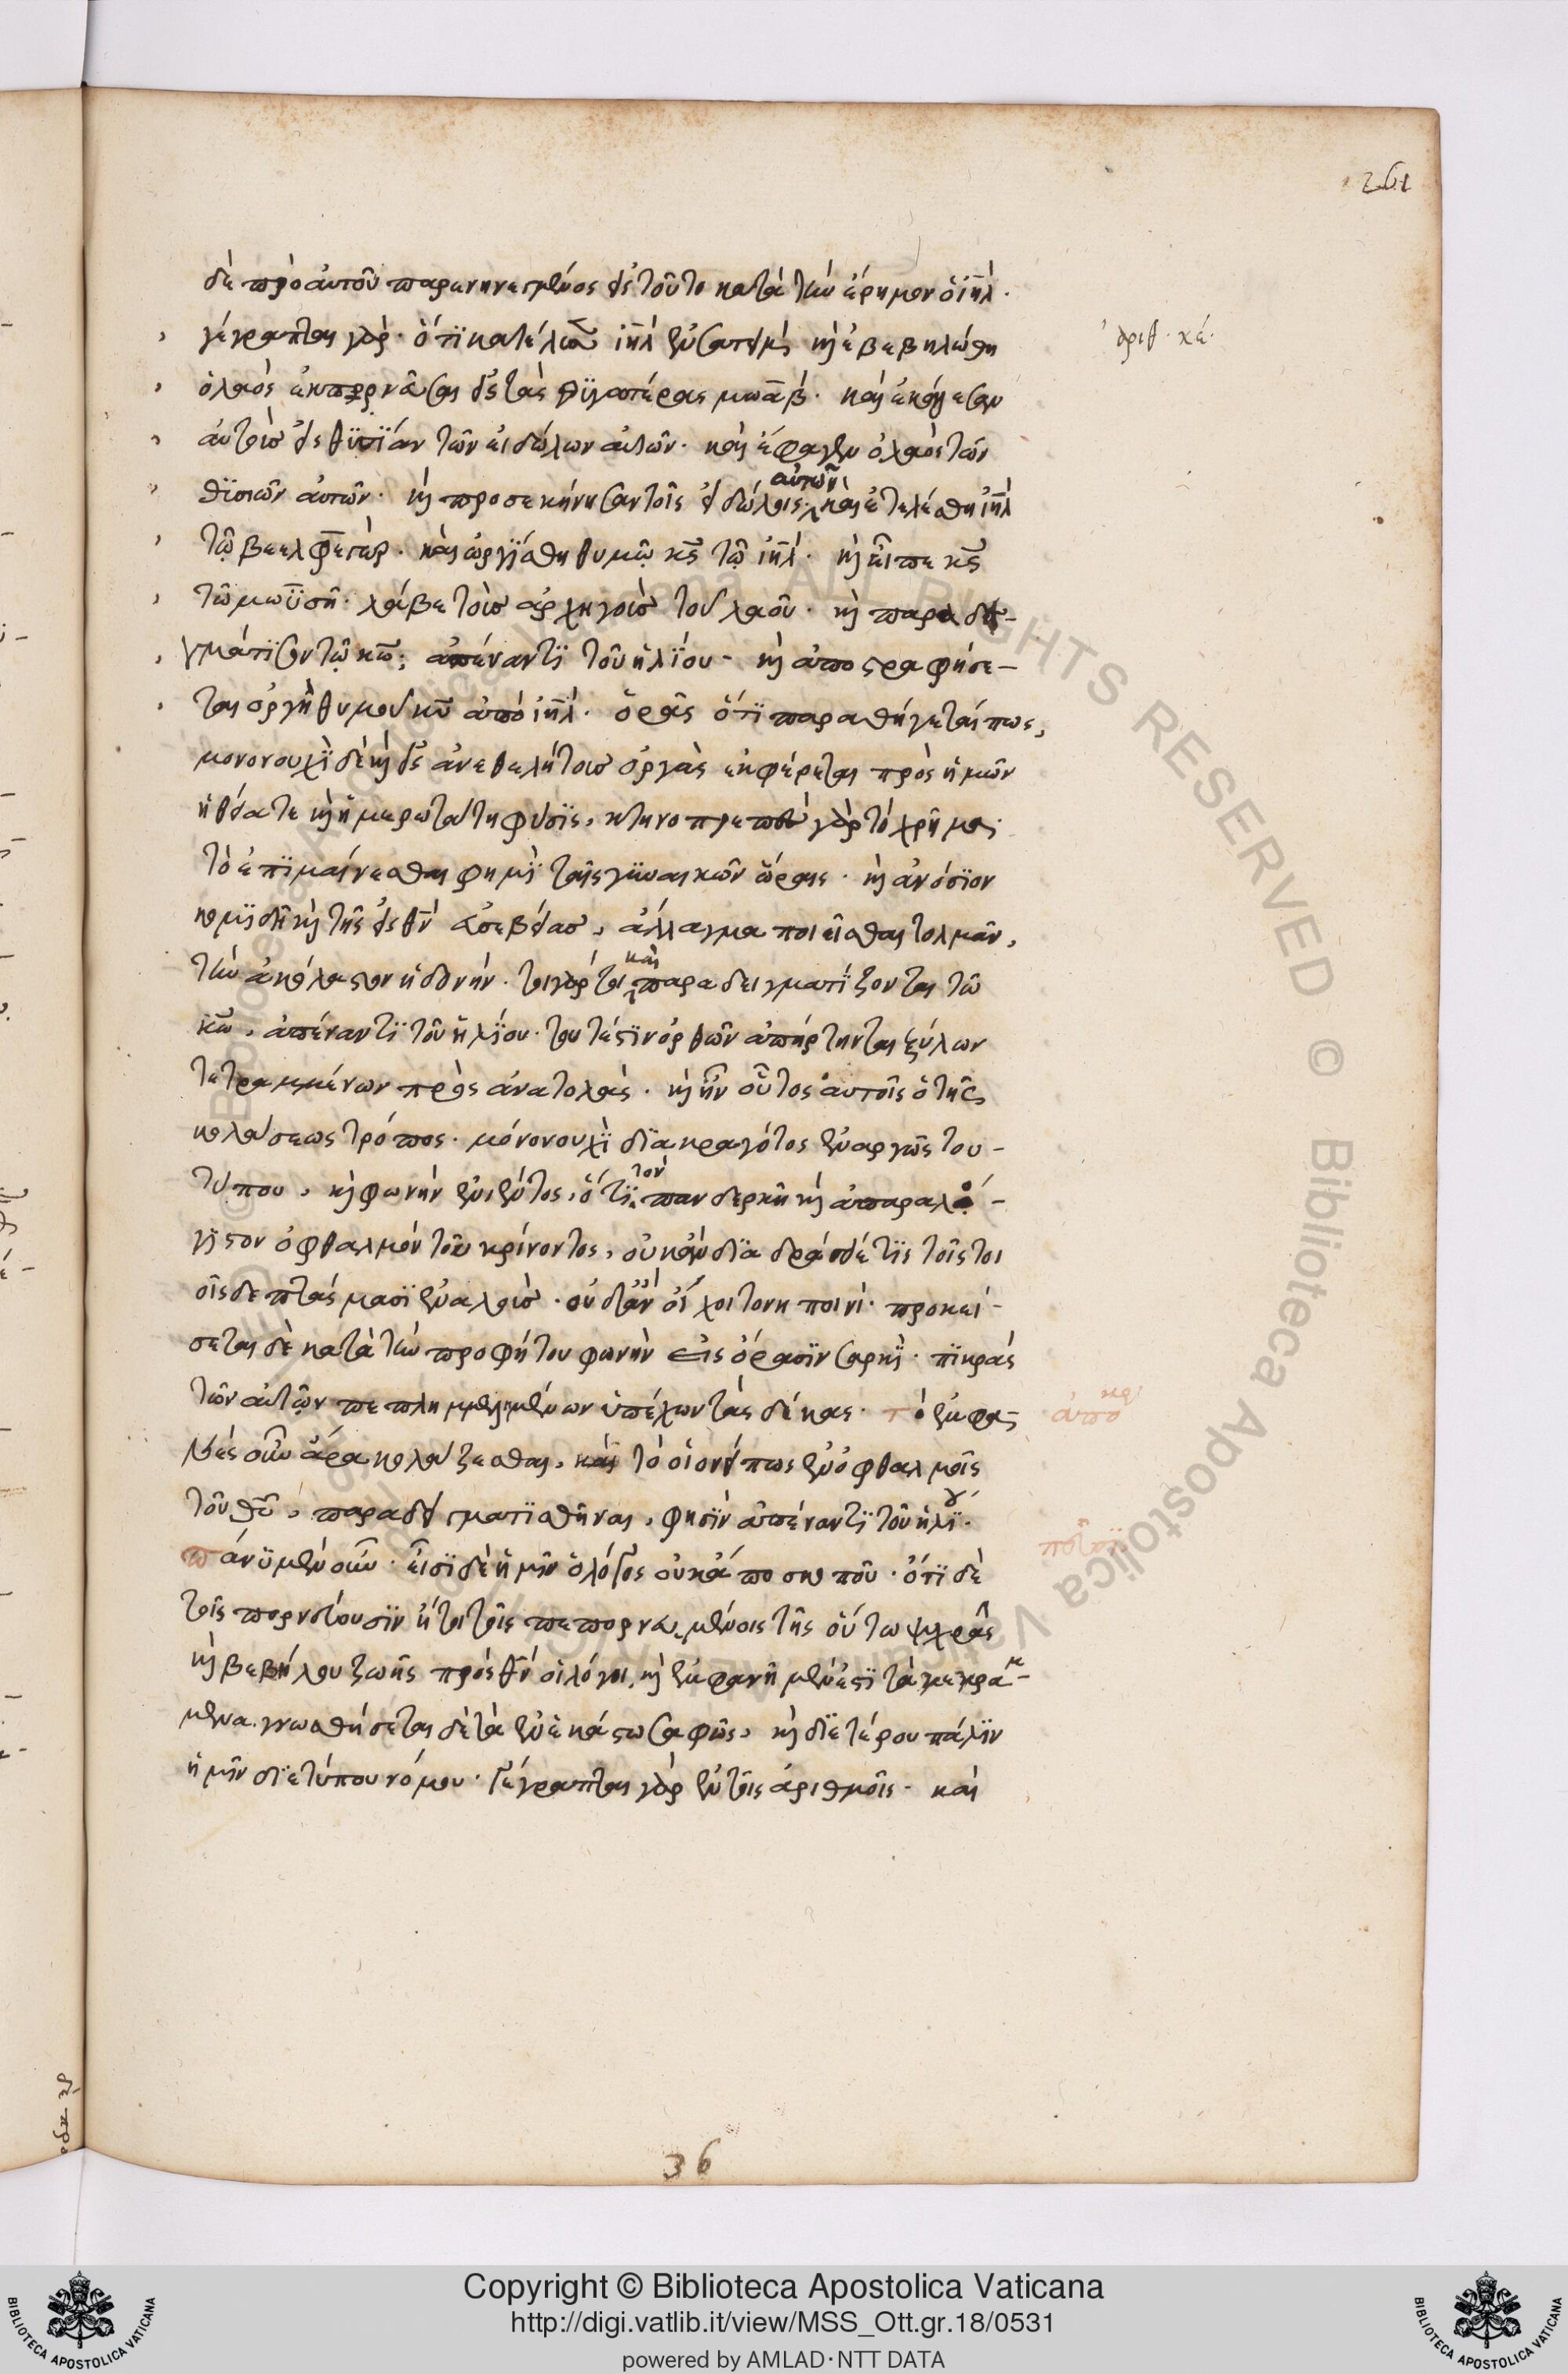 261
δὲ πρὸ αὐτοῦ παρενηνεγμένος εἰς τοῦτο κατὰ τὴν ἔρημον ὁ ἰηλ.
γέγραπται γὰρ. ὅτι κατέλυσεν ἰηλ ἐν σαττεὶμ καὶ ἐβεβηλώθη
ἀριθ. κέ.
ὁ λαὸς ἐκπορνεῦσαι εἰς τὰς θυγατέρας μωάβ. καὶ ἐκάλεσαν
αὐτοὺς εἰς θυσίαν τῶν εἰδώλων αὐτῶν. καὶ ἔφαγεν ὁ λαὸς τῶν
θυσιῶν αὐτῶν. καὶ προσεκύνησαν τοῖς εἰδώλοις αὐτῶν. καὶ ἐτελέσθη ἰηλ
τῷ βεελφεγώρ. καὶ ὠργίσθη θυμῷ κς τῷ ἰηλ. καὶ εἶπε κς
τῷ μωϋσῇ. λάβε τοὺς ἀρχηγοὺς τοῦ λαοῦ. καὶ παραδει-
γμάτισον τῷ κω. ἀπέναντι τοῦ ἡλίου. καὶ ἀποστραφήσε-
ται ὀργὴ θυμοῦ κυ ἀπὸ ἰηλ. ὁρᾷς ὅτι παραθήγεταί πως,
μονονουχὶ δὲ καὶ εἰς ἀνεθελήτους ὀργὰς ἐκφέρεται πρὸς ἡμῶν
ἡ θεία τε καὶ ἡμερωτάτη φύσις. κτηνοπρεπὲς γὰρ τὸ χρῆμα.
τὸ ἐπιμαίνεσθαι φημὶ ταῖς γυναικῶν ὥραις. καὶ ἀνόσιον
κομιδῆ καὶ τῆς εἰς θν εὐσεβείας, ἄλλαγμα ποιεῖσθαι τολμᾶν,
τὴν ἀκόλαστον ἡδονήν. τοιγάρτοι καὶ παραδειγματίζονται τῷ
κω, ἀπέναντι τοῦ ἡλίου. τουτέστιν ὀρθῶν ἀπήρτηνται ξύλων
τετραμμένων πρὸς ἀνατολάς. καὶ ἦν οὗτος αὐτοῖς ὁ τῆς
κολάσεως τρόπος. μονονουχὶ διακεκραγότος ἐναργῶς του-
τύπου, καὶ φωνὴν ἐνιέντος, ὅτι τὸν πανδερκῆ καὶ ἀπαραλό-
γιστον ὀφθαλμὸν τοῦ κρίνοντος, οὐκ ἂν διαδράσειέ τις τοῖς τοι
οῖσδε πταίσμασι ἐναλούς. οὐδ' ἂν οἴχοιτο νηποινί. προκεί-
σεται δὲ κατὰ τὴν προφήτου φωνὴν εἰς ὅρασιν σαρκί. πικρὰς
τῶν αὐτῷ πεπλημμελημένων ὑπέχων τὰς δίκας. τὸ ἐμφα-
νὲς οὖν ἄρα κολάζεσθαι, καὶ τὸ οἱονεί πως ἐν ὀφθαλμοῖς
τοῦ θυ, παραδειγματισθῆναι, φησὶν ἀπέναντι τοῦ ἡλίου.
πάνυ μὲν οὖν. εἶσι δὲ ἡμῖν ὁ λόγος οὐκ ἄπο σκοποῦ. ὅτι δὲ
τοῖς πορνεύουσιν ἤτοι τοῖς πεπορνευμένοις τῆς οὕτω ψυχρᾶς
καὶ βεβήλου ζωῆς πρὸς θν οἱ λόγοι, καὶ ἐμφανῆ μέν ἐστι τὰ κεκρα-
μένα. γνωσθήσεται δὲ τὰ ἐν ἑκάστω σαφῶς, καὶ δι' ἑτέρου πάλιν
ἡμῖν διετύπου νόμου. γέγραπται γὰρ ἐν τοῖς ἀριθμοῖς. καὶ
36
Copyright © Biblioteca Apostolica Vaticana
http://digi.vatlib.it/view/MSS_Ott.gr.18/0531
powered by AMLAD·NTT DATA